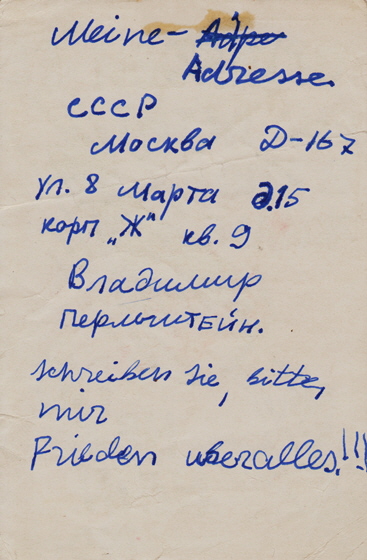 Meine - Адре
Adresse.
СССР
Москва Д-167
ул. 8 Марта д.15
корп „Ж" кв. 9
Владимир
Перлыштейн.
schreiben Sie, bitte,
mir
Frieden uberalles!!!